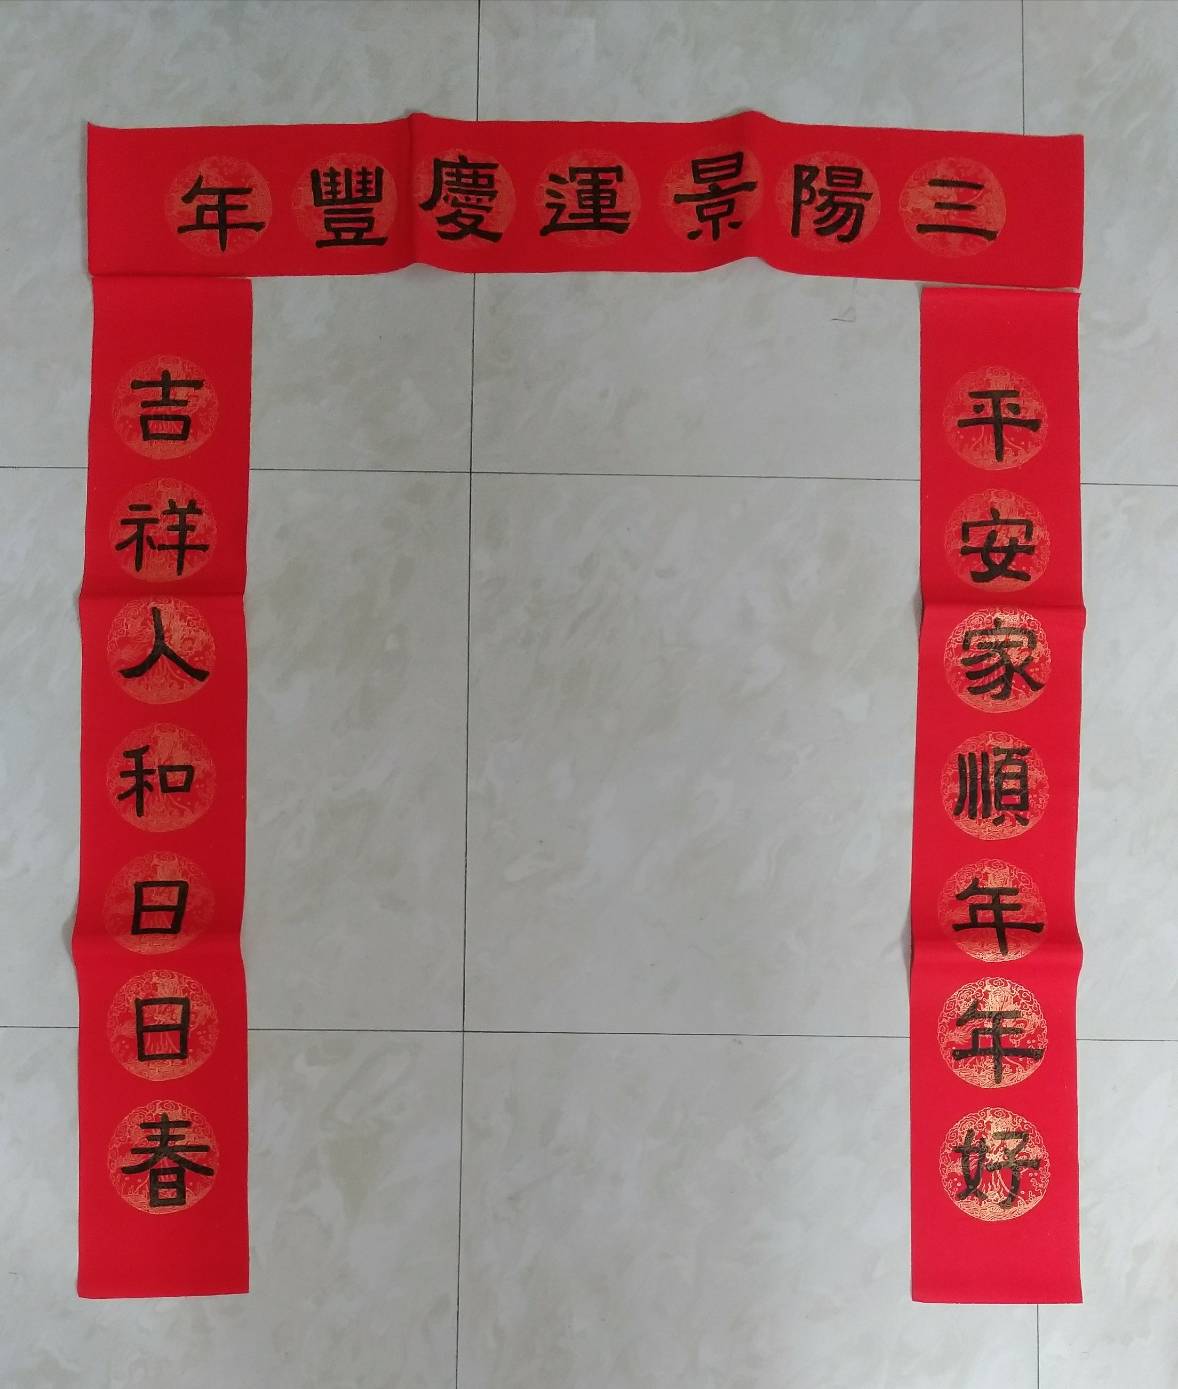 三陽景運慶豐年
平安家順年年好
吉祥人和日日春